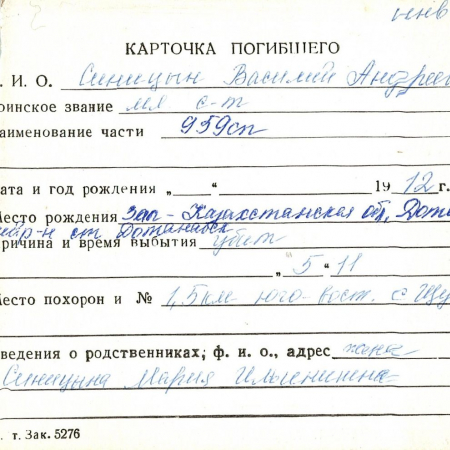 инв
КАРТОЧКА ПОГИБШЕГО
. И. О. Синицын Василий Андрее
оинское звание мл с-т
аименование части 959сп
ата и год рождения „ “ 1912 г.
Место рождения Зап-Казахстанская обл,
р-н ст
ричина и время выбытия убит
„ 5 “ 11
Место похорон и № 1,5 км юго-вост. с
ведения о родственниках; ф. и. о., адрес жена
Синицына Мария Ильинична
. т. Зак. 5276